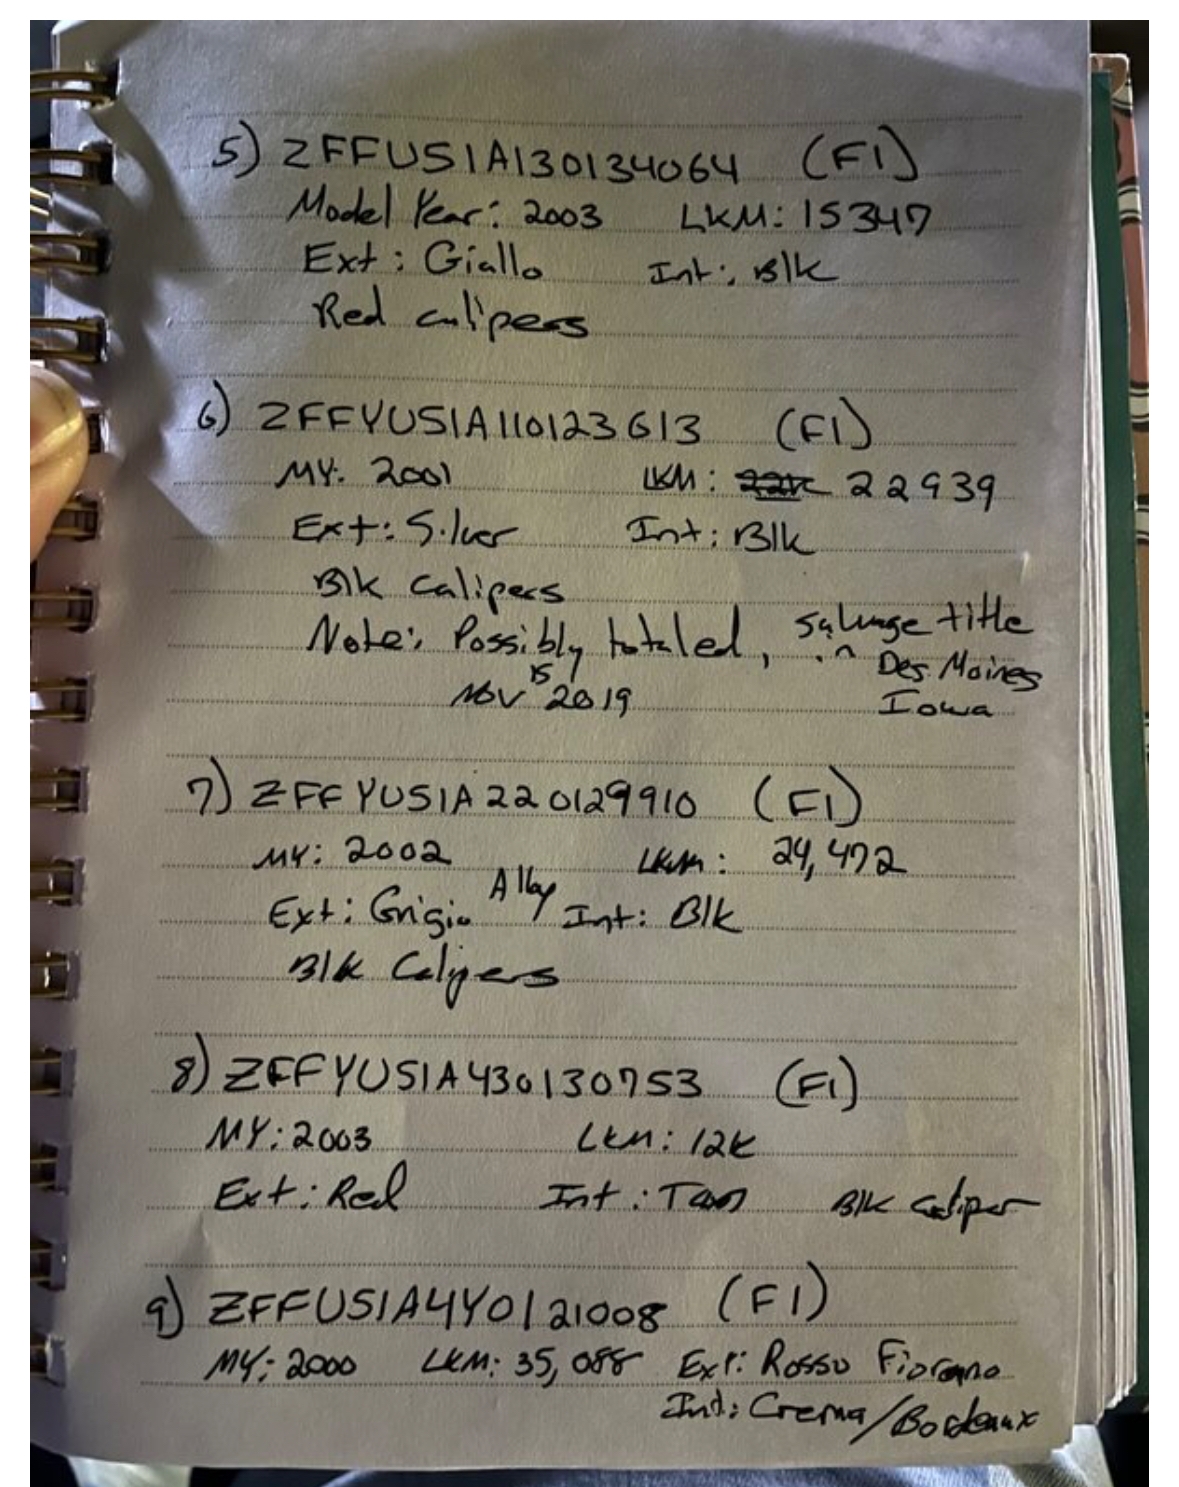 5) ZFFUS1A130134064 (F1)
Model Year: 2003 LKM: 15347
Ext: Giallo Int: Blk
Red calipers
6) ZFFYUS1A110123613 (F1)
MY: 2001 LKM: 22939
Ext: Silver Int: Blk
Blk Calipers
Note: Possibly totaled, salvage title
Des Moines
Nov 15 2019 Iowa
7) ZFFYUS1A220129910 (F1)
MY: 2002 LKM: 24,472
Ext: Grigio Alloy Int: Blk
Blk Calipers
8) ZFFYUS1A430130753 (F1)
MY: 2003 LKM: 12K
Ext: Red Int: Tan Blk caliper
9) ZFFUS1A4Y0121008 (F1)
MY: 2000 LKM: 35,088 Ext: Rosso Fiorano
Int: Crema/Bordeaux